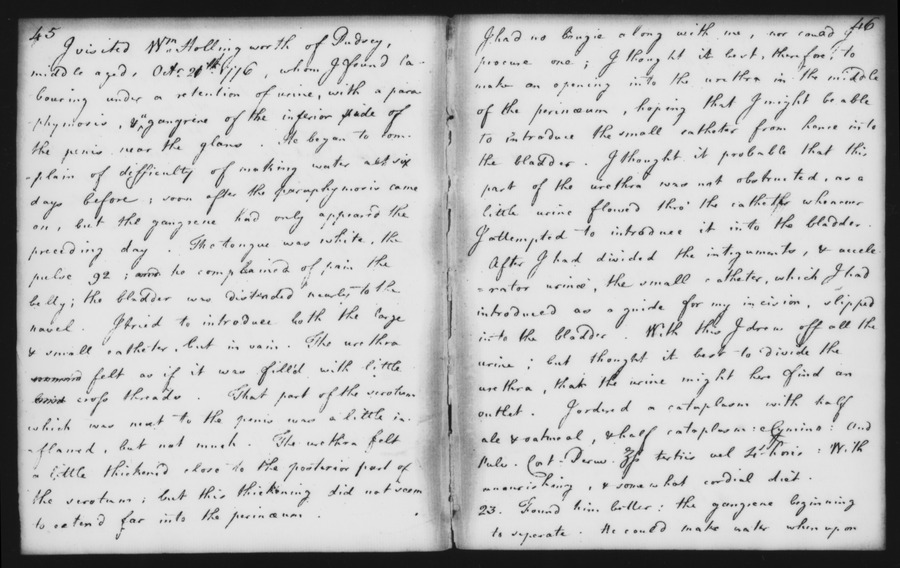 45
I visited Wm. Hollingworth of Pudsey,
middle aged, Octr. 20th 1776, whom I found la-
bouring under a retention of urine, with a para
-phymosis, & gangrene of the inferior side of
the penis near the glans. He began to com-
-plain of difficulty of making water abt six
days before; soon after the paraphymosis came
on, but the gangrene had only appeared the
preceding day. The tongue was white, the
pulse 92; he complained of pain the
belly; the bladder was distended nearly to the
navel. I tried to introduce both the large
& small catheter, but in vain. The urethra
felt as if it was fill'd with little
cross threads. That part of the scrotum
which was next to the penis was a little in-
-flamed, but not much. The urethra felt
a little thicken'd close to the posterior part of
the scrotum; but this thickening did not seem
to extend far into the perinæum.
46
I had no bougie along with me, nor could I
procure one; I thought it best, therefore, to
make an opening into the urethra in the middle
of the perinæum, hoping that I might be able
to introduce the small catheter from hence into
the bladder. I thought it probable that this
part of the urethra was not obstructed, as a
little urine flowed thro' the catheter whenever
I attempted to introduce it into the bladder.
After I had divided the integuments, & accele
-rator urinæ, the small catheter, which I had
introduced as a guide for my incision, slipped
into the bladder. With this I drew off all the
urine; but thought it best to divide the
urethra, that the urine might here find an
outlet. I ordered a cataplasm with half
ale & oatmeal, & half cataplasm: e Cymino: And
Pulv. Cort. Peruv. ʒſs tertiis vel 4tis horis: With
nourishing, & somewhat cordial diet.
23. Found him better: the gangrene beginning
to seperate. He could make water when upon